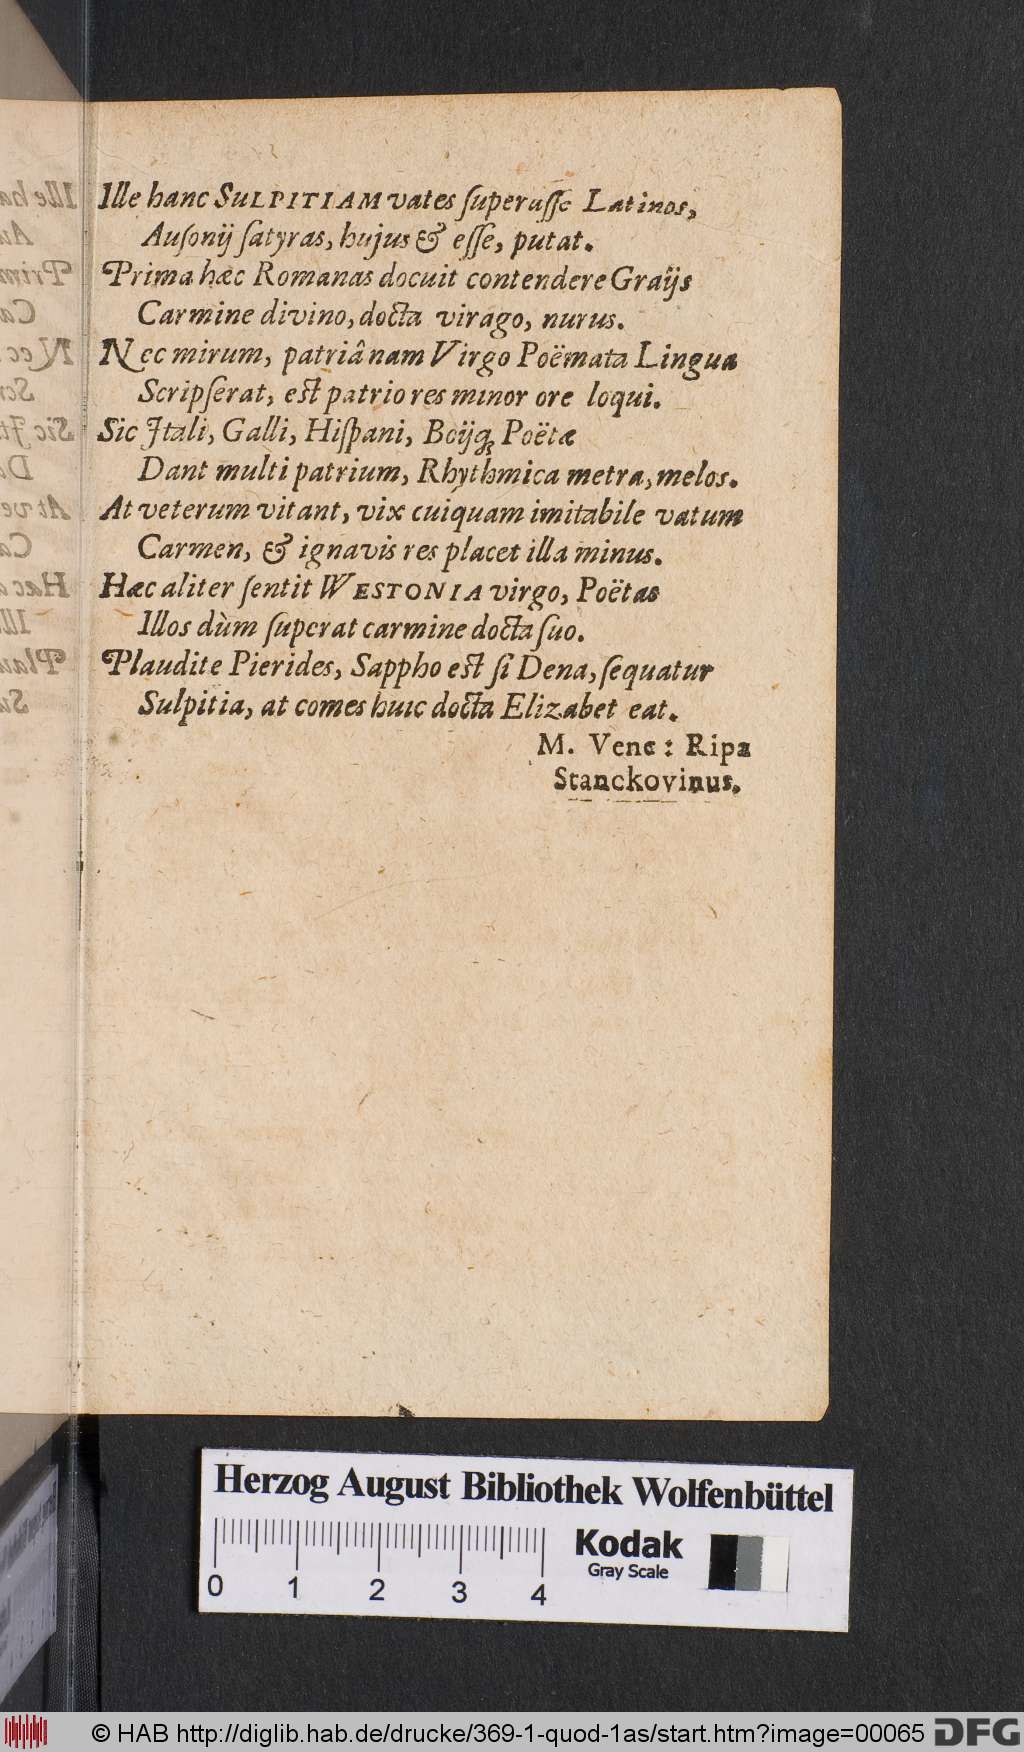 Ille hanc SULPITIAM vates ſuperaſſe Latinos,
Auſonij ſatyras, hujus & eſſe, putat.
Prima hæc Romanas docuit contendere Graijs
Carmine divino, docta virago, nurus.
Nec mirum, patriâ nam Virgo Poëmata Lingua
Scripſerat, est patrio res minor ore loqui.
Sic Itali, Galli, Hiſpani, Boijq; Poëtæ
Dant multi patrium, Rhythmica metra, melos.
At veterum vitant, vix cuiquam imitabile vatum
Carmen, & ignavis res placet illa minus.
Hæc aliter ſentit WESTONIA virgo, Poëtas
Illos dùm ſuperat carmine docta ſuo.
Plaudite Pierides, Sappho est ſi Dena, ſequatur
Sulpitia, at comes huic docta Elizabet eat.
M. Vene: Ripa
Stanckovinus.
Herzog August Bibliothek Wolfenbüttel
Kodak
Gray Scale
0 1 2 3 4
© HAB http://diglib.hab.de/drucke/369-1-quod-1as/start.htm?image=00065 DFG